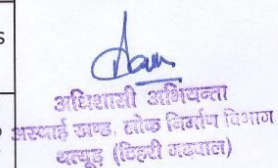 s
अधिशासी अभियन्ता
अस्थाई खण्ड, लोक निर्माण विभाग
थत्यूड़ (टिहरी गढ़वाल)